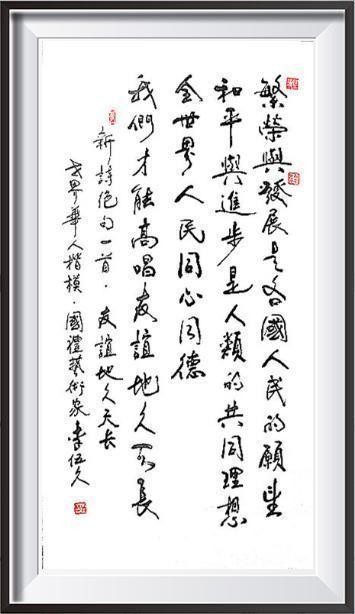 繁榮與發展是各國人民的願望
和平與進步是人類的共同理想
全世界人民同心同德
我們才能高唱友誼地久天長
新詩絕句一首·友誼地久天長
世界華人楷模·國禮藝術家李伍久